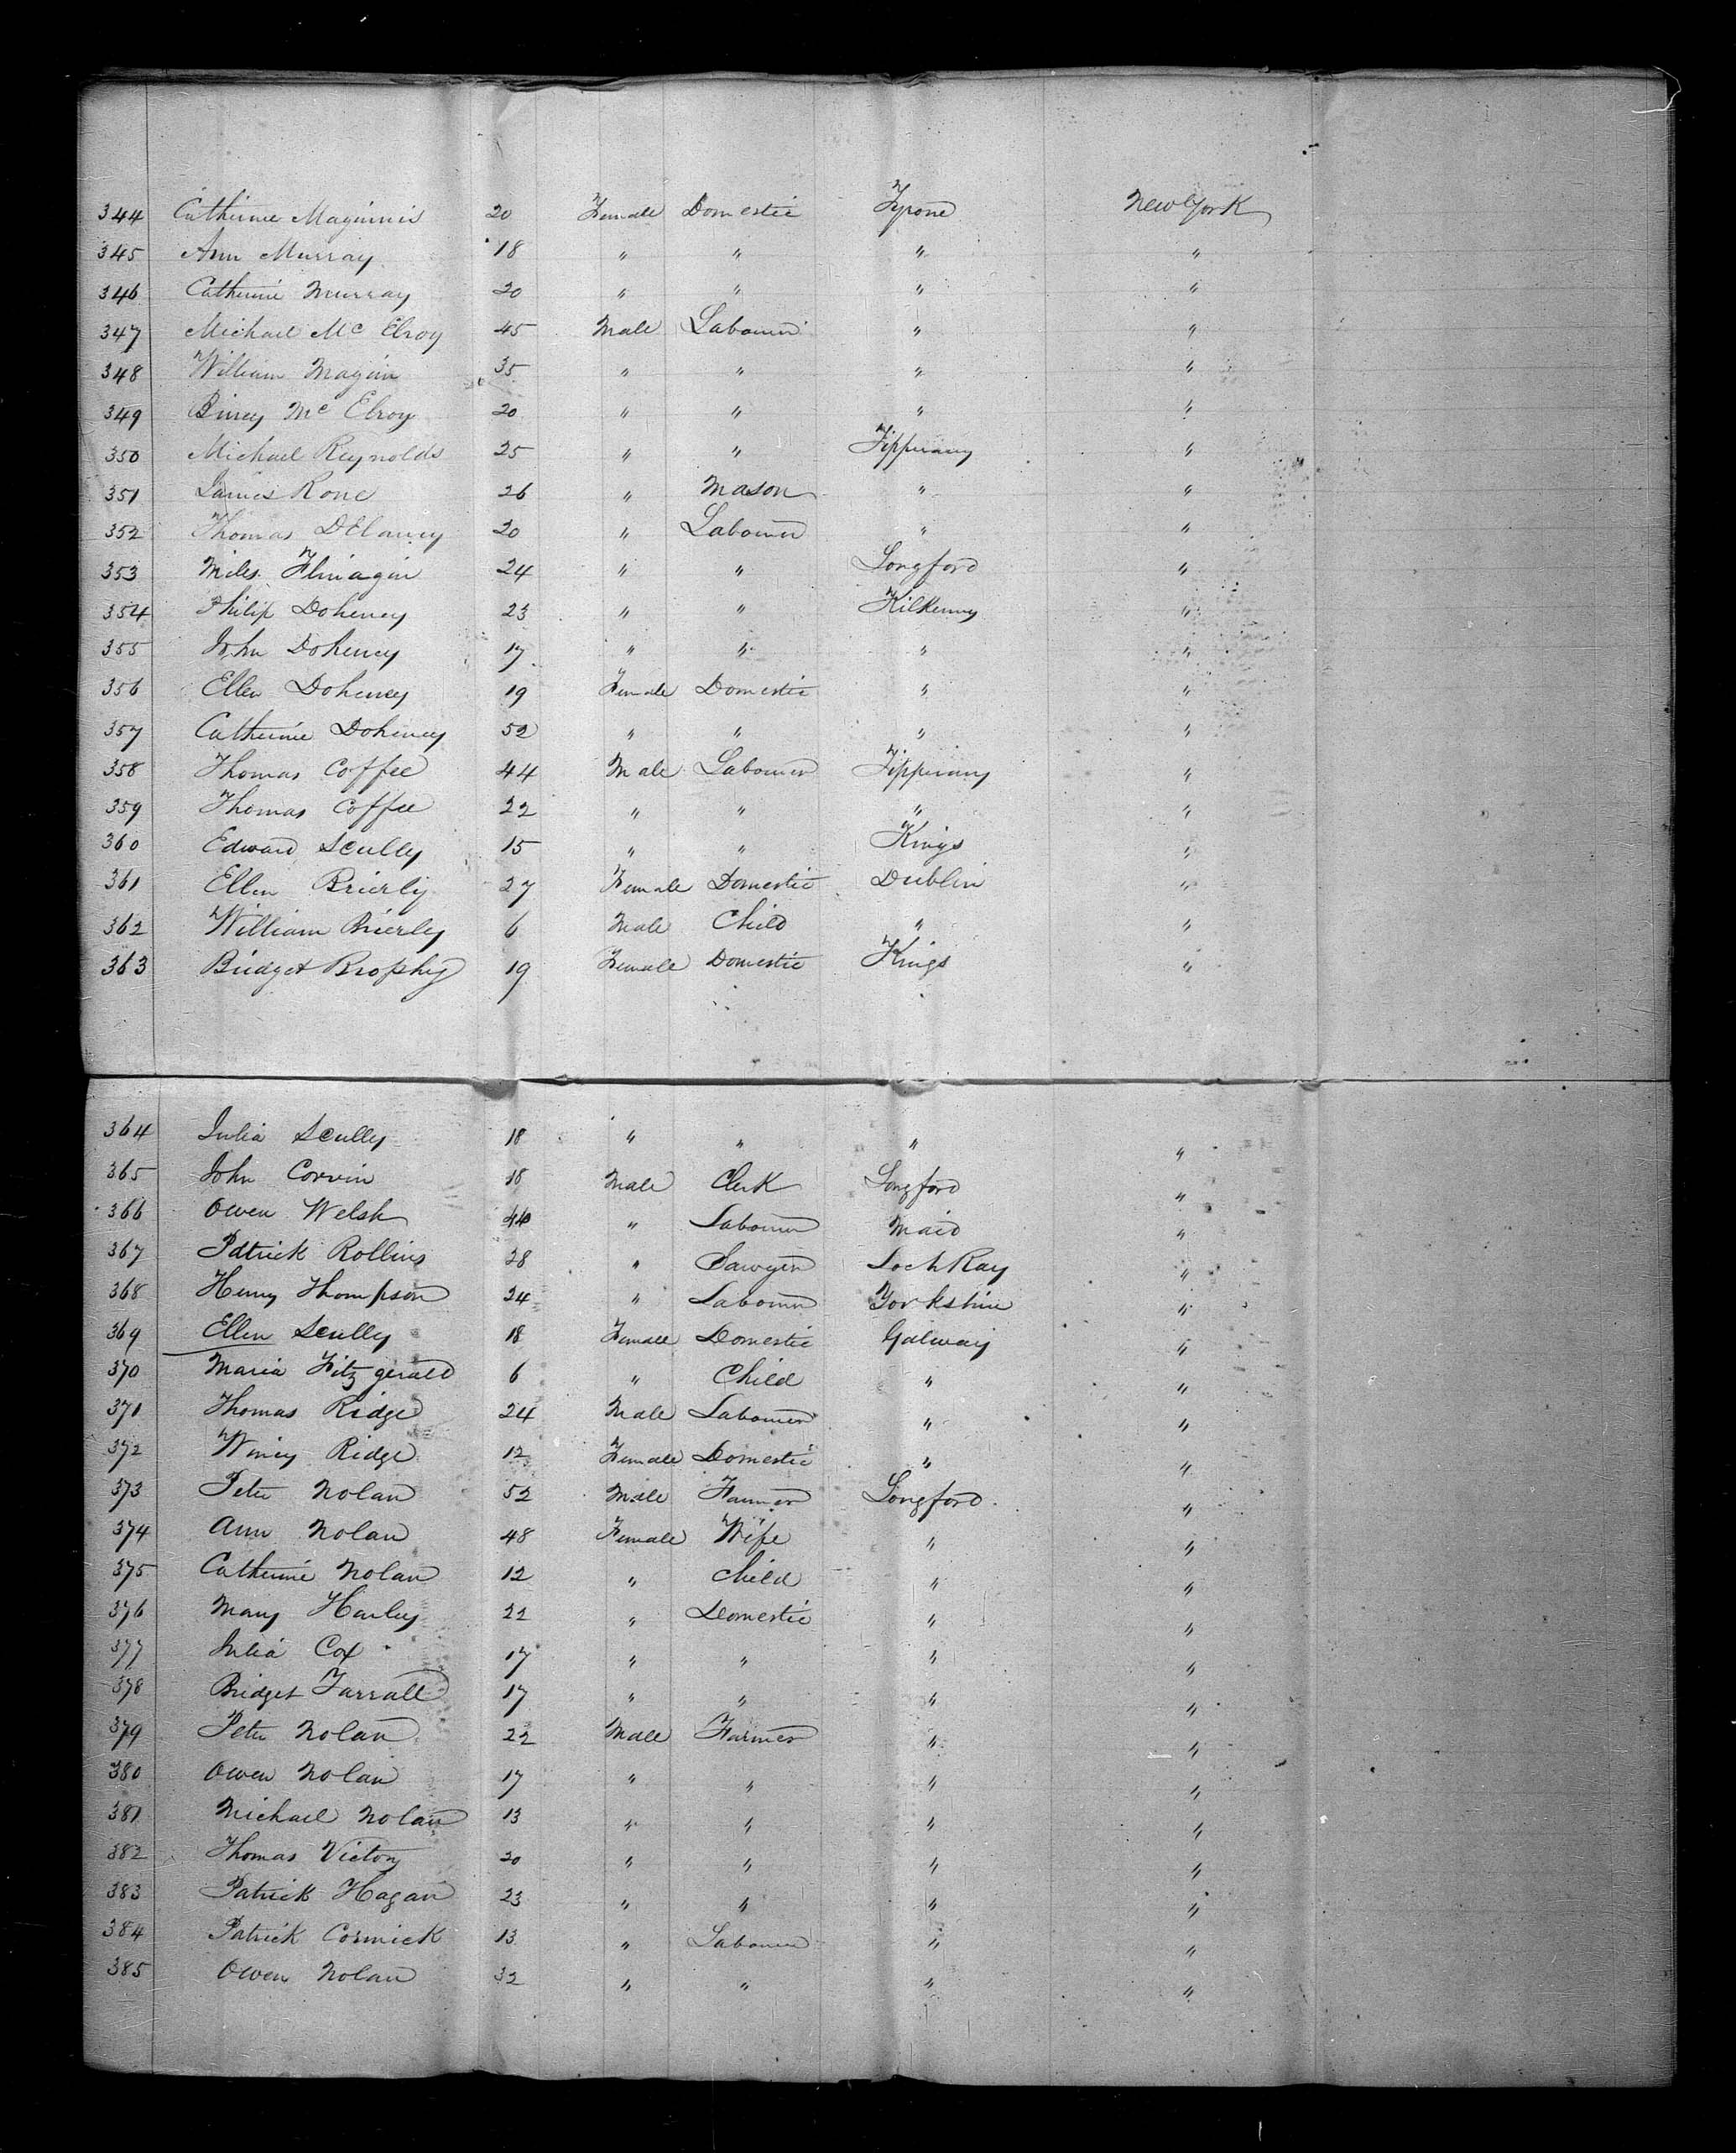 344 Catherine Maginnis 20 Female Domestic Tyrone New York
345 Ann Murray 18 " " " "
346 Catherine Murray 20 " " " "
347 Michael Mc Elroy 45 Male Labourer " "
348 William Magin 35 " " " "
349 Biney Mc Elroy 20 " " " "
350 Michael Reynolds 25 " " Tipperary "
351 James Rone 26 " Mason " "
352 Thomas DElaney 20 " Labourer " "
353 Miles Flinagin 24 " " Longford "
354 Philip Doheney 23 " " Kilkenny "
355 John Doheney 17 " " " "
356 Ellen Doheney 19 Female Domestic " "
357 Catherine Doheney 52 " " " "
358 Thomas Coffee 44 Male Labourer Tipperary "
359 Thomas Coffee 22 " " " "
360 Edward Scully 15 " " Kings "
361 Ellen Brierly 27 Female Domestic Dublin "
362 William Brierley 6 Male Child " "
363 Bridget Brophy 19 Female Domestic Kings "
364 Julia Scully 18 " " " "
365 John Corvin 18 Male Clerk Longford "
366 Owen Welsh 44 " Labourer Maio "
367 Patrick Rollins 28 " Sawyer Loch Ray "
368 Henry Thompson 24 " Labourer Yorkshire "
369 Ellen Scully 18 Female Domestic Galway "
370 Maria Fitzgerald 6 " Child " "
371 Thomas Ridge 24 Male Labourer " "
372 Winey Ridge 12 Female Domestic " "
373 Peter Nolan 52 Male Farmer Longford "
374 Ann Nolan 48 Female Wife " "
375 Catherine Nolan 12 " Child " "
376 Mary Harley 22 " Domestic " "
377 Julia Cox 17 " " " "
378 Bridget Farrall 17 " " " "
379 Peter Nolan 22 Male Farmer " "
380 Owen Nolan 17 " " " "
381 Michael Nolan 13 " " " "
382 Thomas Victory 20 " " " "
383 Patrick Hagan 23 " " " "
384 Patrick Cormick 13 " Labourer " "
385 Owen Nolan 32 " " " "